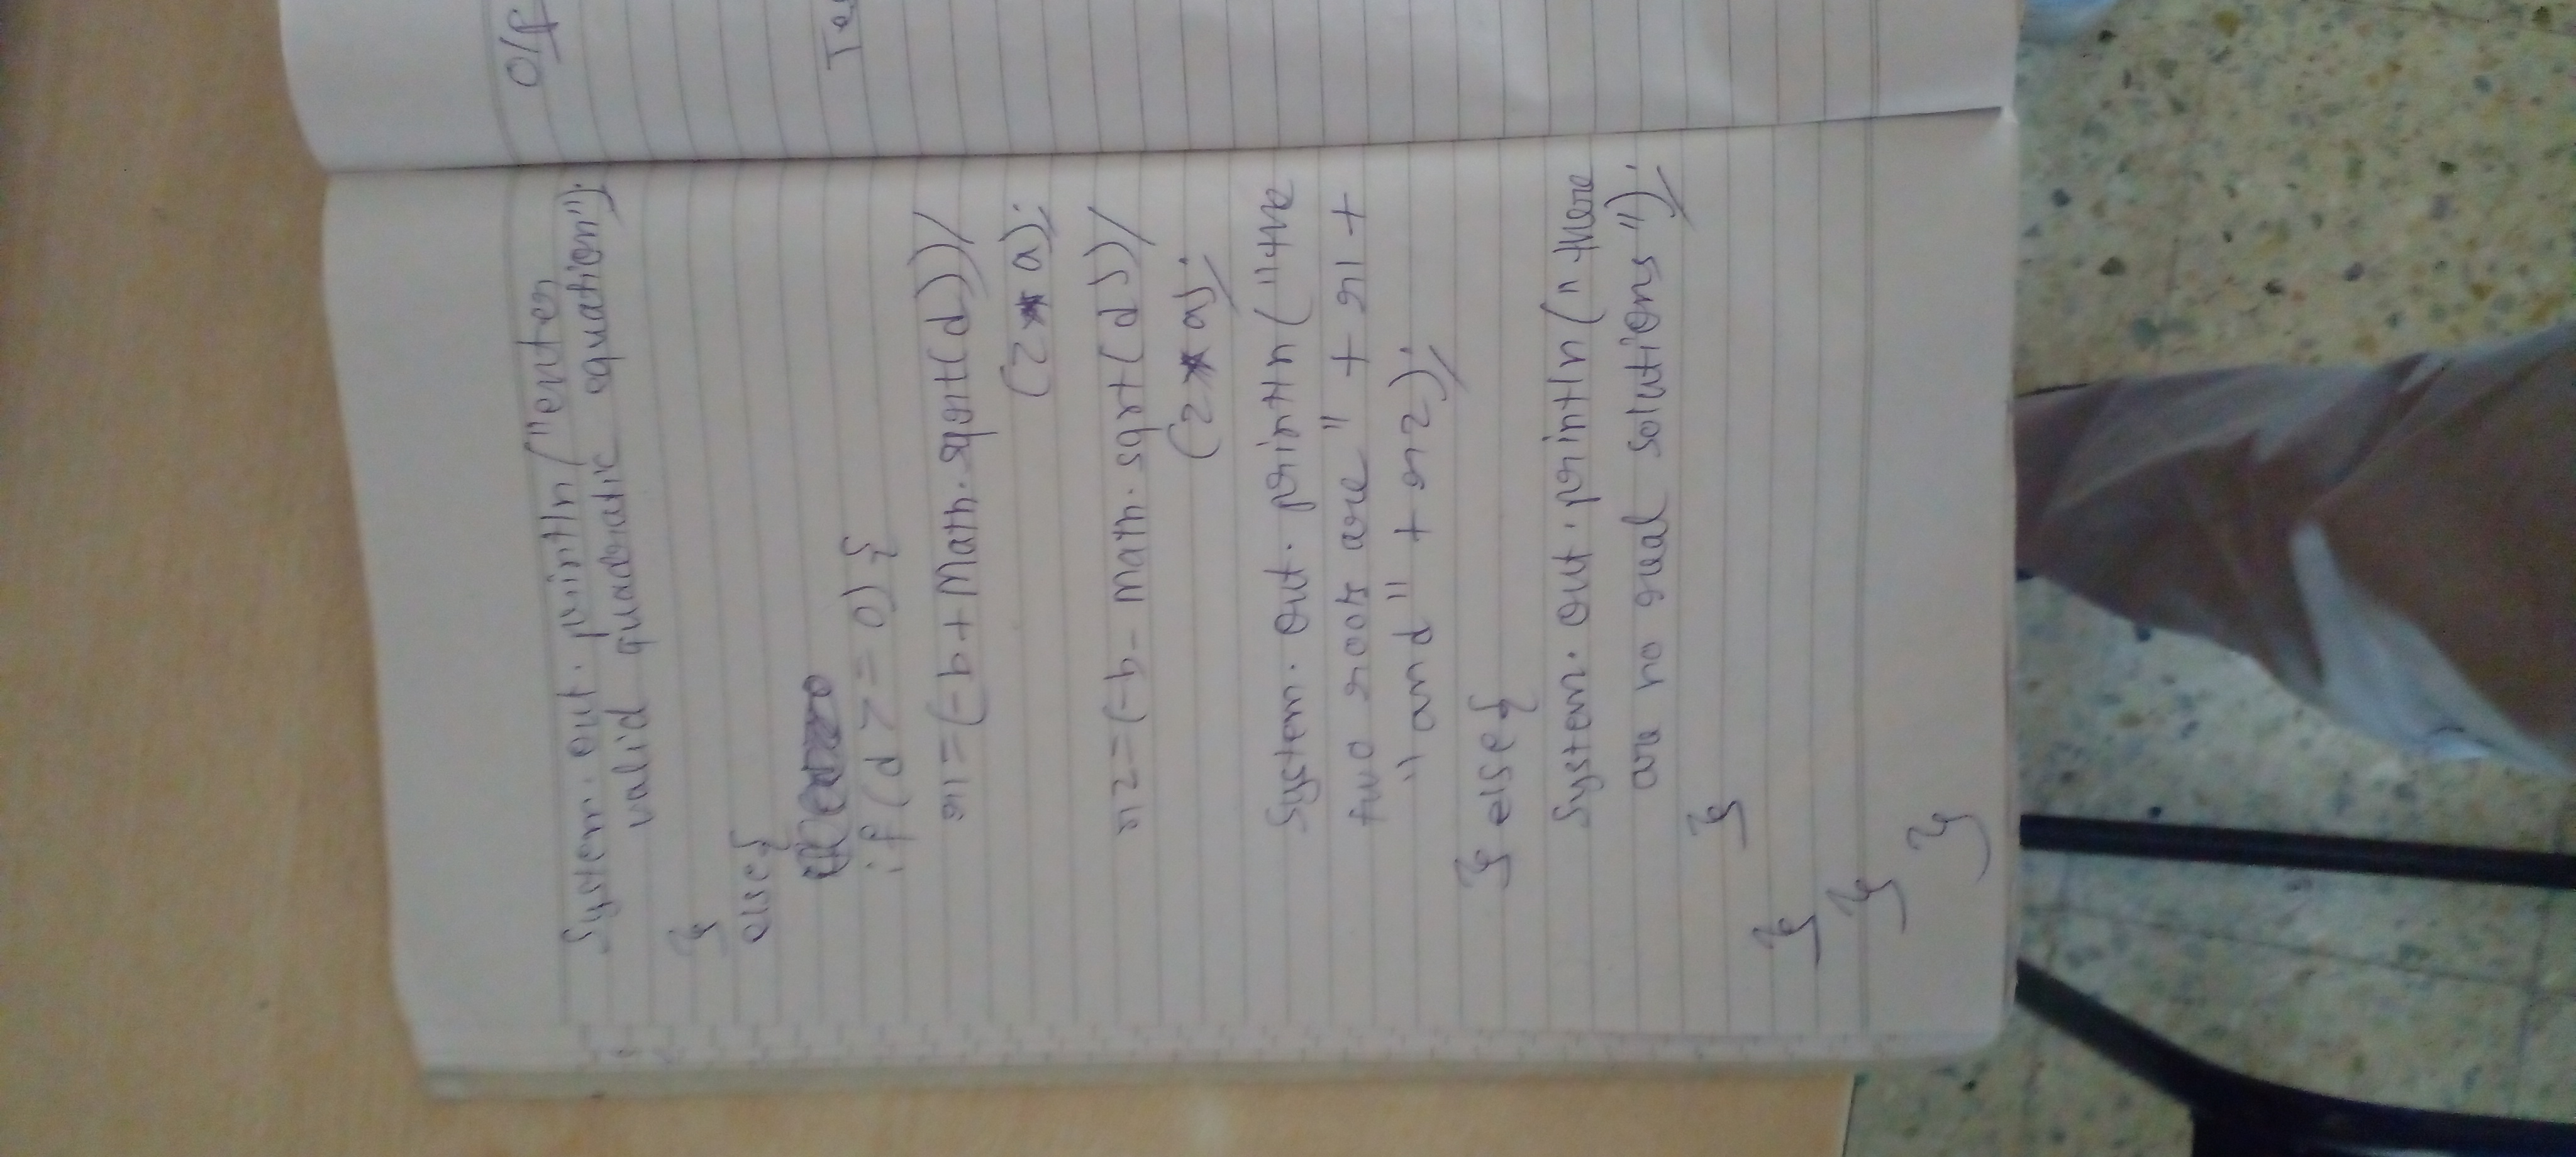 System.out.println("enter
valid quadratic equation");
}
else{
if(d>=0){
r1=(-b+Math.sqrt(d))/
(2*a);
r2=(-b-Math.sqrt(d))/
(2*a);
System.out.println("the
two roots are" + r1 +
"and" + r2);
} else{
System.out.println("there
are no real solutions");
}
}
}
}
O/P